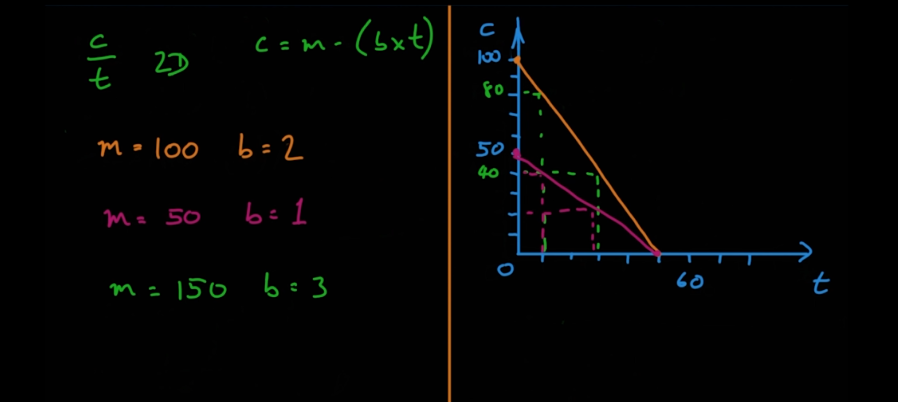 c/t 2D c = m - (b×t)
m = 100 b = 2
m = 50 b = 1
m = 150 b = 3
c
100
80
50
40
0
60
t